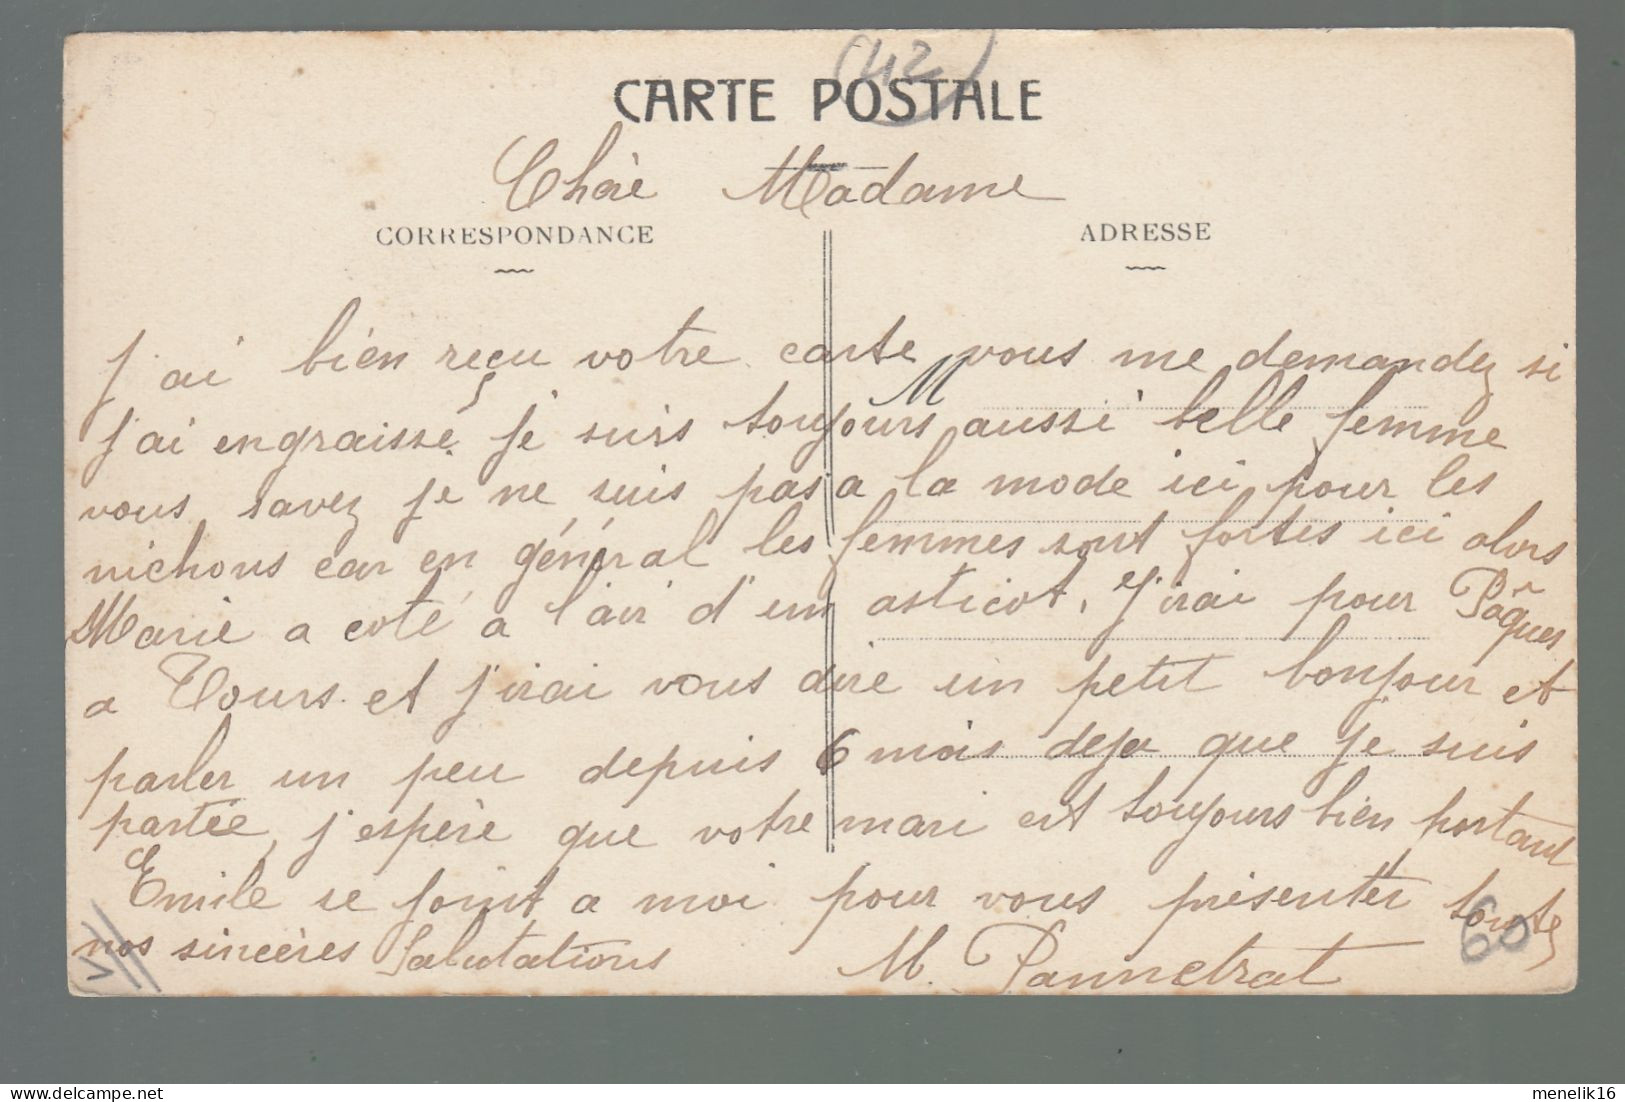 (42)
CARTE POSTALE
Chère Madame
CORRESPONDANCE
ADRESSE
J'ai bien reçu votre carte vous me demandez si
M
j'ai engraissé, je suis toujours aussi belle femme
vous savez je ne suis pas a la mode ici pour les
nichons car en général les femmes sont fortes ici alors
Marie a coté a l'air d'un asticot. J'irai pour Pâques
a Tours et j'irai vous dire un petit bonjour et
parler un peu depuis 6 mois deja que je suis
partée, j'espère que votre mari est toujours bien portant
Emile se joint a moi pour vous présenter toutes
nos sincères Salutations M. Pannetrat
60
menelik16